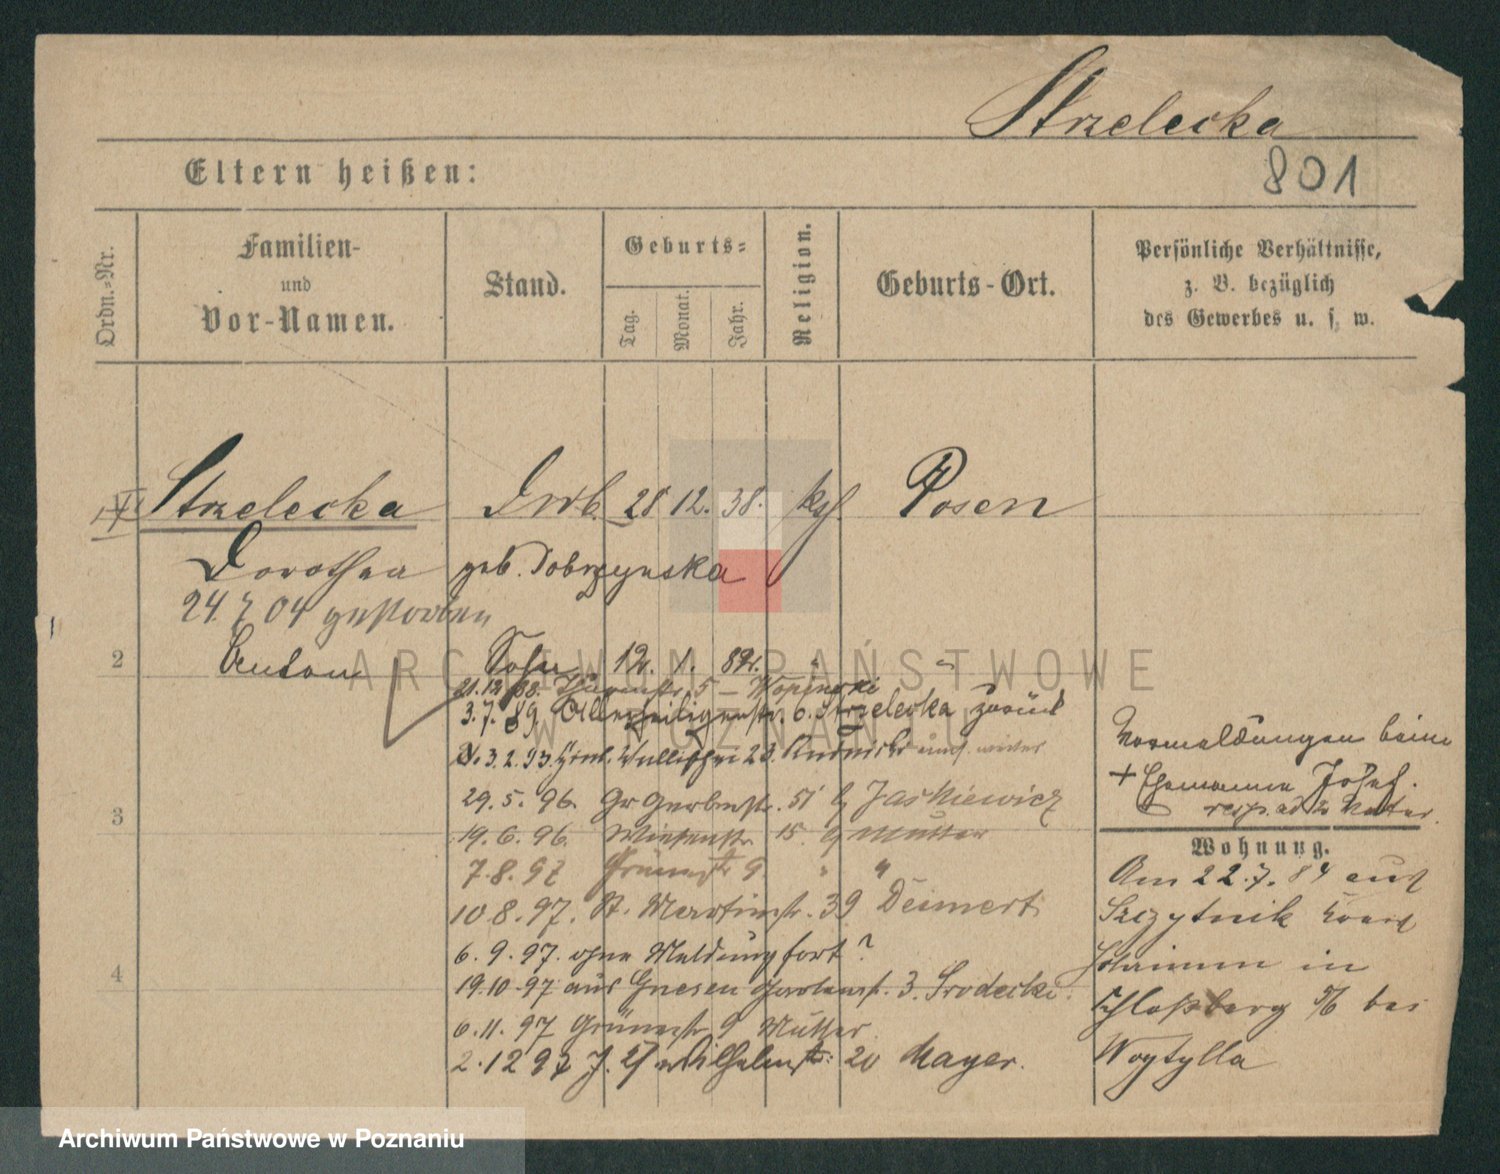 Strzelecka
801
Eltern heißen:
Ordn.-Nr.
Familien-
und
Vor-Namen.
Stand.
Geburts-
Tag.
Monat.
Jahr.
Religion.
Geburts-Ort.
Persönliche Verhältnisse,
z. B. bezüglich
des Gewerbes u. s. w.
Strzelecka 28 12. 38. kth. Posen
Dorothea geb. Dobrzynska
24. 7 04 gestorben
2 Sohn
21.12 88. 5 –
3.7. 89 Allerheiligenstr. 6. Strzelecka zurück
3.2.93. Wallischei 23.
29. 5. 96. Gr Gerberstr. 51 Jaskiewicz
3
19. 6. 96. Wiesenstr. 15 Mutter
7.8.97 Grünestr 9 "
10.8.97. St. Martinstr. 39 Deimert
6. 9. 97. ohne Meldung fort?
4
19.10.97 aus Gnesen Gartenstr. 3. Srodecki.
6.11.97 Grünestr 9 Mutter
2.12 97 Wilhelmstr. 20 Mayer.
Vormeldungen beim
+ Ehemanne Josef.
resp. ad 2 Mutter.
Wohnung.
Am 22.7.84 aus
Szczytnik
in
Schloßberg bei
Woytylla
ARCHIWUM PAŃSTWOWE
W POZNANIU
Archiwum Państwowe w Poznaniu